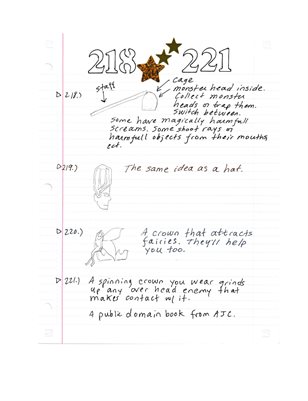 218 221
staff
cage
▷ 218.) monster head inside.
Collect monster
heads or trap them.
Switch between.
Some have magically harmfull
screams. Some shoot rays or
harmfull objects from their mouths,
ect.
▷ 219.) The same idea as a hat.
▷ 220.) A crown that attracts
fairies. They'll help
you too.
▷ 221.) A spinning crown you wear grinds
up any over head enemy that
makes contact w/ it.
A public domain book from AJC.